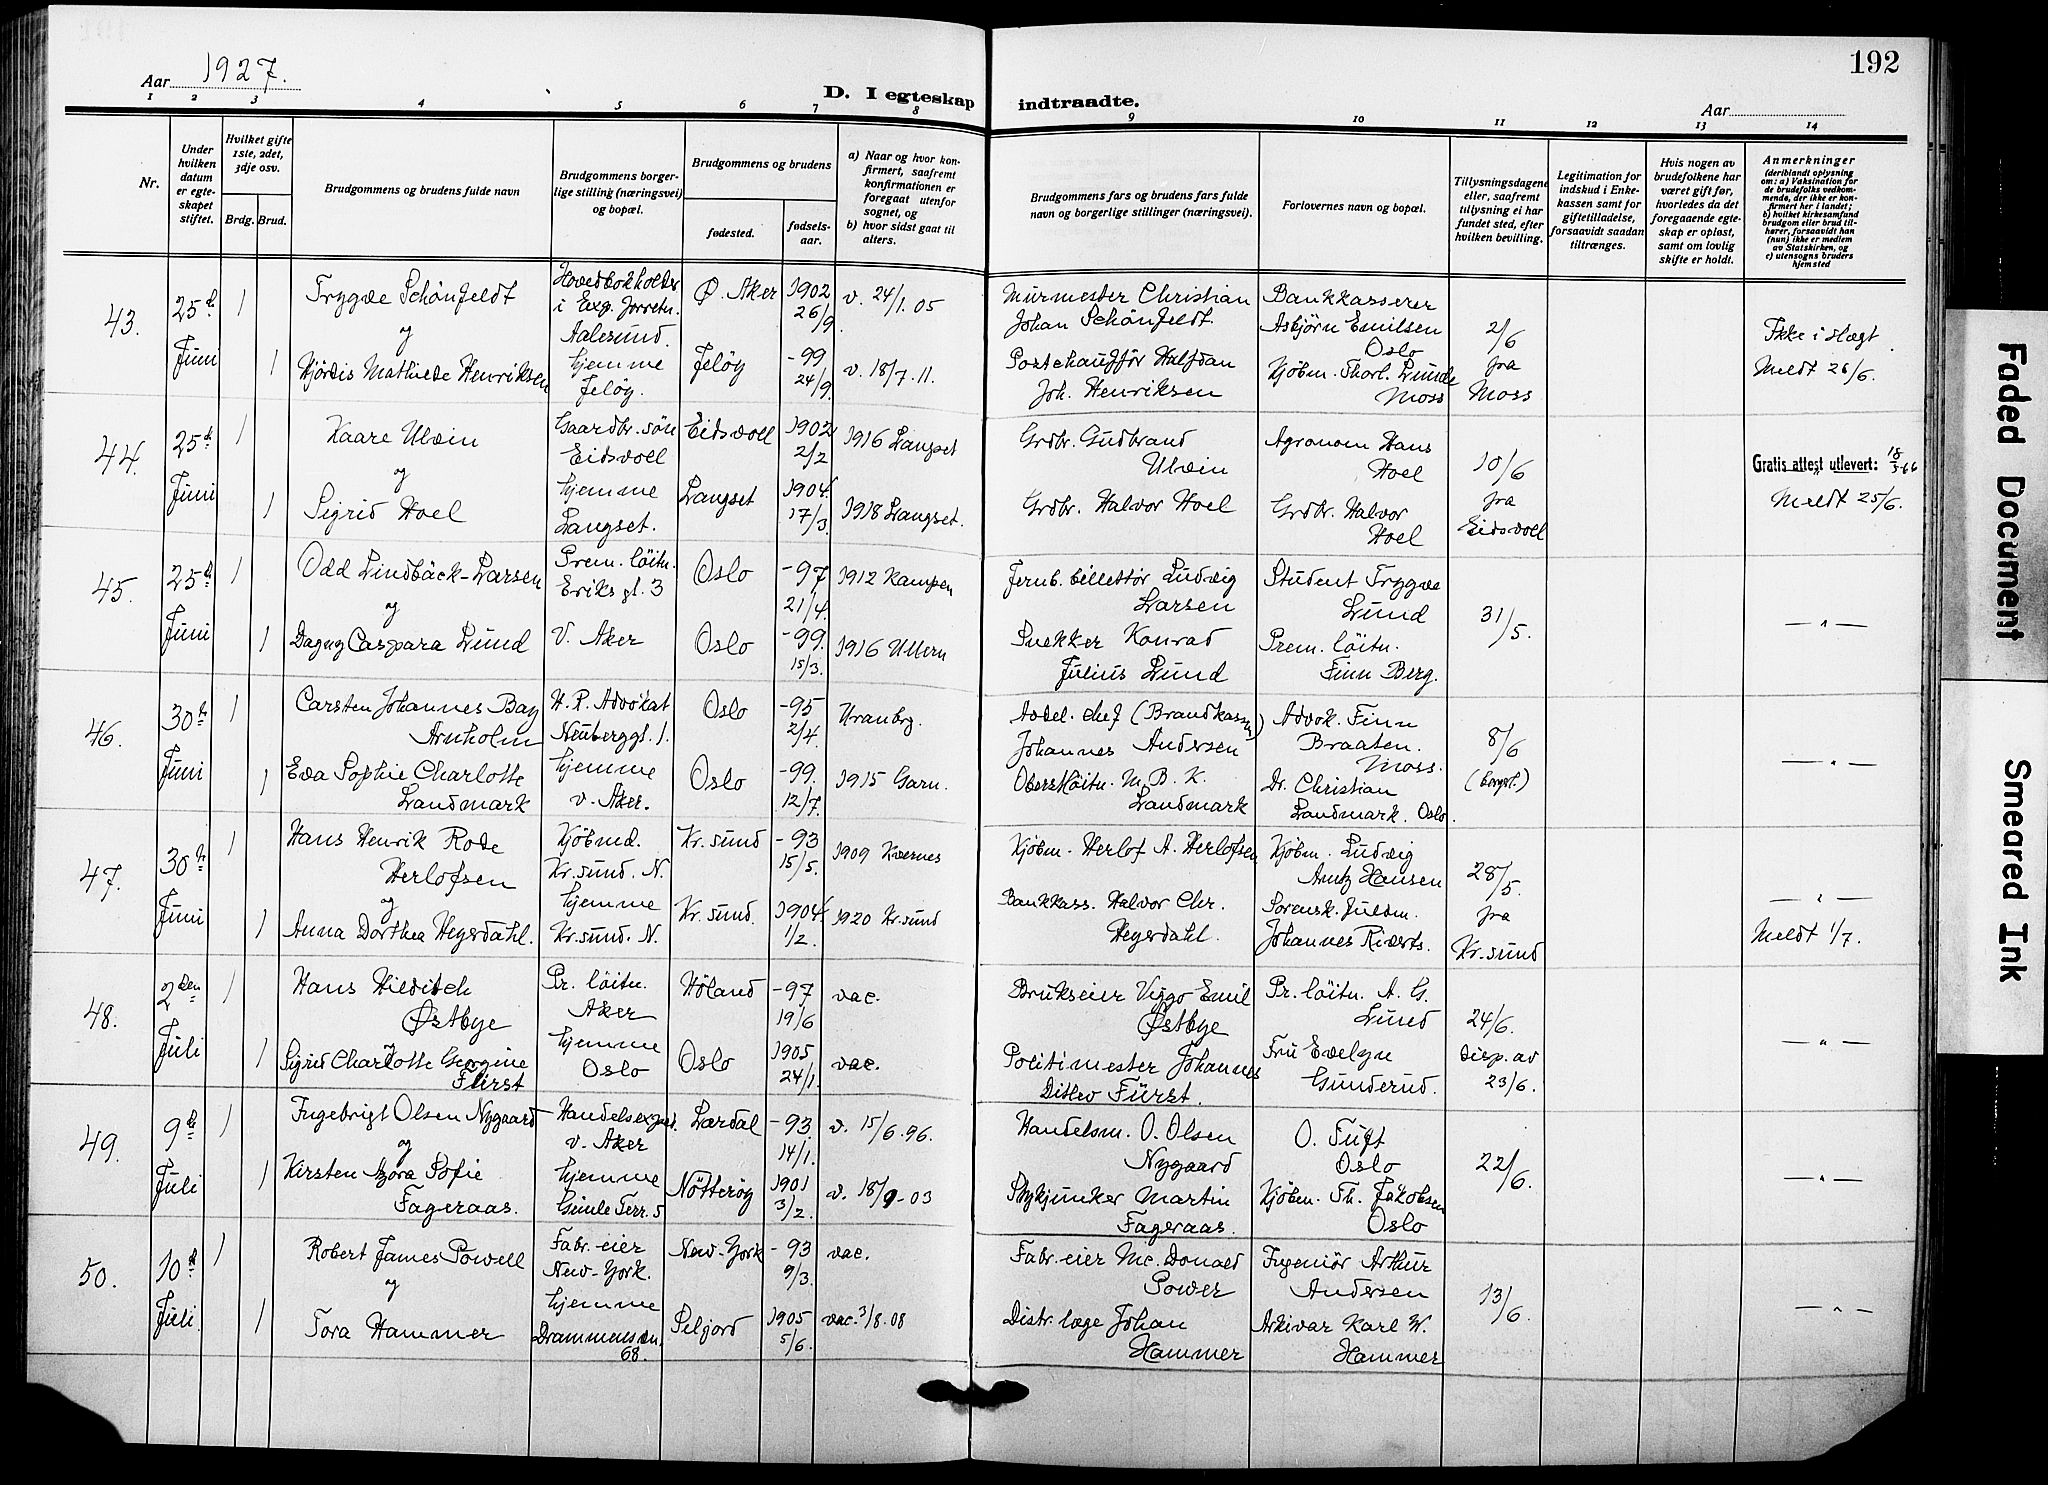 192
Aar 1927.
D. I egteskap indtraadte.
Aar
1 2 3 4 5 6 7 8 9 10 11 12 13 14
Nr.
Under hvilken datum er egte-skapet stiftet.
Hvilket gifte 1ste, 2det, 3dje osv.
Brdg. Brud.
Brudgommens og brudens fulde navn
Brudgommens borger-lige stilling (næringsvei) og bopæl.
Brudgommens og brudens
fødested. fødsels-aar.
a) Naar og hvor kon-firmert, saafremt konfirmationen er foregaat utenfor sognet, og
b) hvor sidst gaat til alters.
Brudgommens fars og brudens fars fulde navn og borgerlige stillinger (næringsvei).
Forlovernes navn og bopæl.
Tillysningsdagene eller, saafremt tillysning ei har fundet sted, efter hvilken bevilling.
Legitimation for indskud i Enke-kassen samt for giftetilladelse, forsaavidt saadan tiltrænges.
Hvis nogen av brudefolkene har været gift før, hvorledes da det foregaaende egte-skap er opløst, samt om lovlig skifte er holdt.
Anmerkninger
(deriblandt oplysning om: a) Vaksination for de brudefolks vedkom-mende, der ikke er kon-firmert her i landet; b) hvilket kirkesamfund brudgom eller brud til-hører, forsaavidt han (hun) ikke er medlem av Statskirken, og c) utensogns bruders hjemsted
43. 25d Juni 1 Trygve Schönfeldt Hovedbokholder i Exp. Aalesund. Ø. Aker 1902 26/9 v. 24/1. 05 Murmester Christian Johan Schönfeldt. Bankkasserer Asbjörn Emilsen Oslo 2/6 Ikke i slegt
og
1 Hjördis Mathilde Henriksen hjemme Jelöy. Jelöy -99 24/9 v. 18/7. 11. Postchauffør Halfdan Joh. Henriksen Kjöbm. Thorl. Lunde Moss fra Moss Meldt 26/6.
44. 25d Juni 1 Kaare Ulvin Gaardbr. sön Eidsvoll Eidsvoll 1902 2/2 1916 Langset Grdbr. Gudbrand Ulvin Agronom Hans Hoel 10/6 Gratis attest utlevert: 18/3-66
og
1 Sigrid Hoel hjemme Langset. Langset 1904. 17/3 1918 Langset. Grdbr. Halvor Hoel Grdbr. Halvor Hoel fra Eidsvoll Meldt 25/6.
45. 25d Juni 1 Odd Lindbäck-Larsen Prem. löitn. Eriks gt. 3 Oslo -97 21/4. 1912 Kampen Jernb. billettør Ludvig Larsen Student Trygve Lund 31/5. — " —
og
1 Dagny Caspara Lund V. Aker Oslo -99. 15/3. 1916 Ullern Snekker Konrad Julius Lund Prem. löitn. Finn Berg.
46. 30te Juni 1 Carsten Johannes Bay Arnholm H. R. Advokat Neuberggt. 1. Oslo -95 2/4 Uranbg. Avdel. chef (Brandkassen) Johannes Andersen Advok. Finn Braaten. Moss. 8/6 — " —
1 Eva Sophie Charlotte Landmark hjemme v. Aker. Oslo -99. 12/7. 1915 Garn. Oberstlöitn. M. B. K. Landmark Dr. Christian Landmark. Oslo.
47. 30te Juni 1 Hans Henrik Rode Herlofsen Kjöbmd. Kr.sund. N. Kr. sund -93 15/5. 1909 Kvernes Kjöbm. Herlof A. Herlofsen Kjöbm. Ludvig Arntz Hansen 28/5. — " —
og
1 Anna Dorthea Heyerdahl. hjemme Kr.sund. N. Kr. sund. 1904 1/2. 1920 Kr.sund Bankkass. Halvor Chr. Heyerdahl. Sorensk. fuldm. Johannes fra Kr.sund Meldt 1/7.
48. 2den Juli 1 Hans Hilditch Østbye Pr. löitn. Aker Höland -97 19/6 vac. Brukseier Viggo Emil Østbye Pr. löitn. A. G. Lund 24/6. — " —
og
1 Sigrid Charlotte Georgine Fürst hjemme Oslo Oslo 1905 24/1. vac. Politimester Johannes Ditlev Fürst. Fru Evelyn Gunderud. disp. av 23/6.
49. 9de Juli 1 Ingebrigt Olsen Nygaard v. Aker Lærdal -93. 14/1. v. 15/6. 96. Handelsm. O. Olsen Nygaard O. Tuft Oslo 22/6. — " —
og
1 Kirsten Sofie Fageraas. hjemme Terr. 5 Nötteröy 1901 3/2. v. 18/9-03 Martin Fageraas. Kjöbm. Th. Jakobsen Oslo
50. 10d Juli. 1 Robert James Powell Fabr. eier New-York. New-York -93 9/3. vac. Fabr. eier Mc. Donald Power Ingeniör Arthur Andersen 13/6. — " —
og
1 Tora Hammer hjemme Drammensvn. 68. Seljord 1905 5/6. vac. 3/8. 08 Distr. læge Johan Hammer Arkivar Karl W. Hammer
Faded Document
Smeared Ink